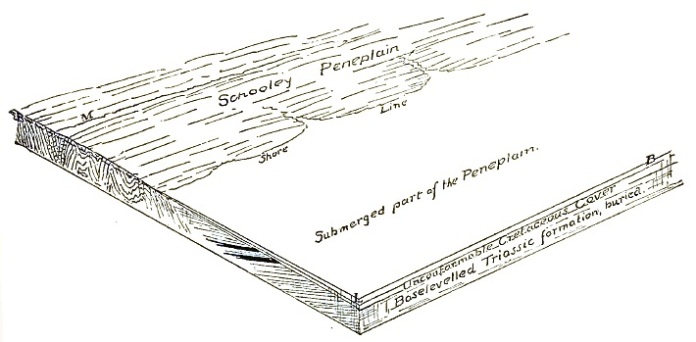 Schooley Peneplain
M
Shore Line
Submerged part of the Peneplain.
B
Unconformable Cretaceous Cover
Baselevelled Triassic formation, buried.
L